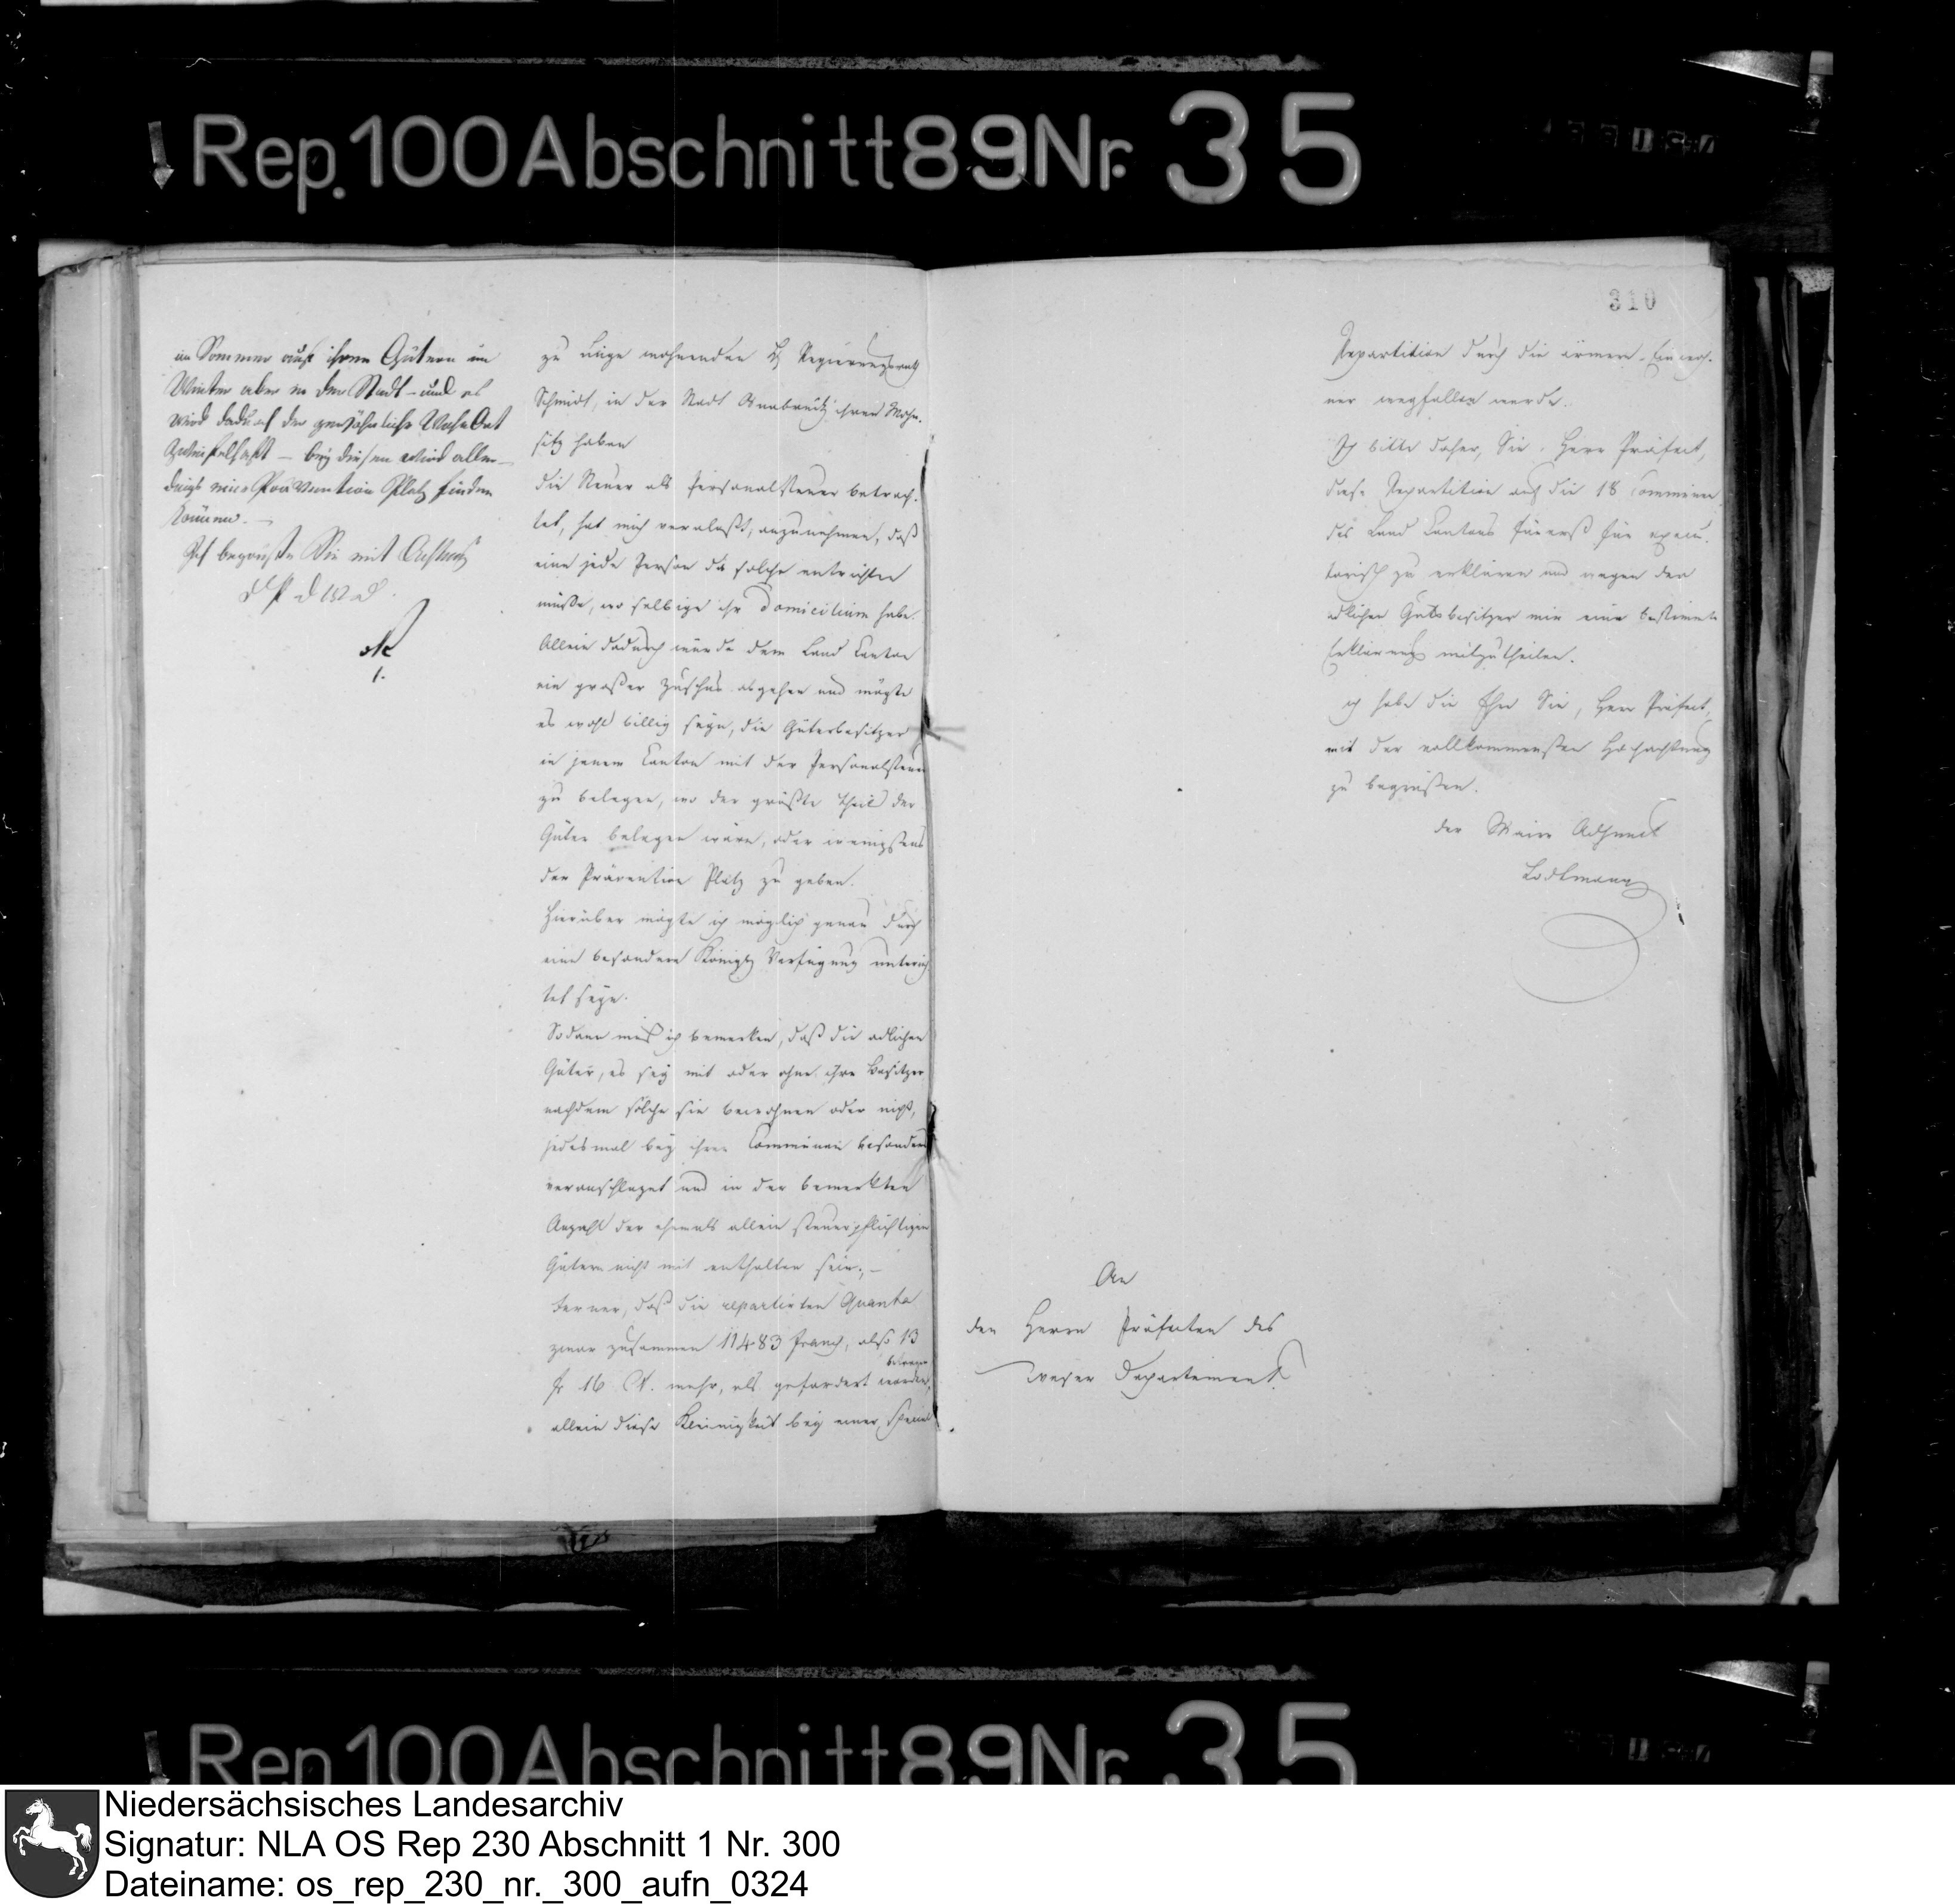 Rep. 100 Abschnitt 89 Nr. 35
im Sommer auf ihren Gütern im
Winter aber in der Stadt - und es
wird dadurch der gewöhnliche Wohn Ort
zweifelhaft - bey diesen wird aller-
dings eine Prävention Platz finden
können. -
Ich begrüße Sie mit Achtung
zu wohnenden H Regierungsrath
Schmidt, in der Stadt Osnabrück ihren Wohn-
sitz haben
die Steuer als Personalsteuer betrach-
tet, hat mich veranlaßt, anzunehmen, daß
eine jede Person da solche entrichten
müsse, wo selbige ihr Domicilium habe.
Allein dadurch würde dem Land Canton
ein großer Zuschus abgehen und mögte
es wohl billig seyn, die Güterbesitzer
in jenem Canton mit der Personalsteuer
zu belegen, wo der größte Theil der
Güter belegen wäre, oder wenigstens
der Prävention Platz zu geben.
Hierüber mögte ich möglich genau durch
eine besondere Königl Verfügung unterrich-
tet seyn.
Sodann muß ich bemerken, daß die adlichen
Güter, es sey mit oder ohne ihre Besitzer
nachdem solche sie bewohnen oder nicht,
jedesmal bey ihrer Commünen besonders
veranschlaget und in der bemerkten
Anzahl der ehemals allein steuerpflichtigen
Gütern nicht mit enthalten sein; -
ferner, daß die repartirten Quanta
zwar zusammen 11483 Franc, also 13
fr 16 Ct. mehr, als gefordert worden,
betragen
allein diese Kleinigkeit bey einer
310
Repartition durch die ärmern Einwoh-
ner wegfallen werde.
Ich bitte daher, Sie, Herr Präfect,
diese Repartition auf die 18 Communen
des Land Cantons fürerst für execu-
torisch zu erklären und wegen der
adlichen Gutsbesitzer mir eine bestimmte
Erklärung mitzutheilen.
ich habe die Ehre Sie, Herr Präfect,
mit der vollkommensten Hochachtung
zu begrüßen.
der Maire Adjunct
An
den Herrn Präfecten des
Weser Departement
Rep. 100 Abschnitt 89 Nr. 35
Niedersächsisches Landesarchiv
Signatur: NLA OS Rep 230 Abschnitt 1 Nr. 300
Dateiname: os_rep_230_nr._300_aufn_0324